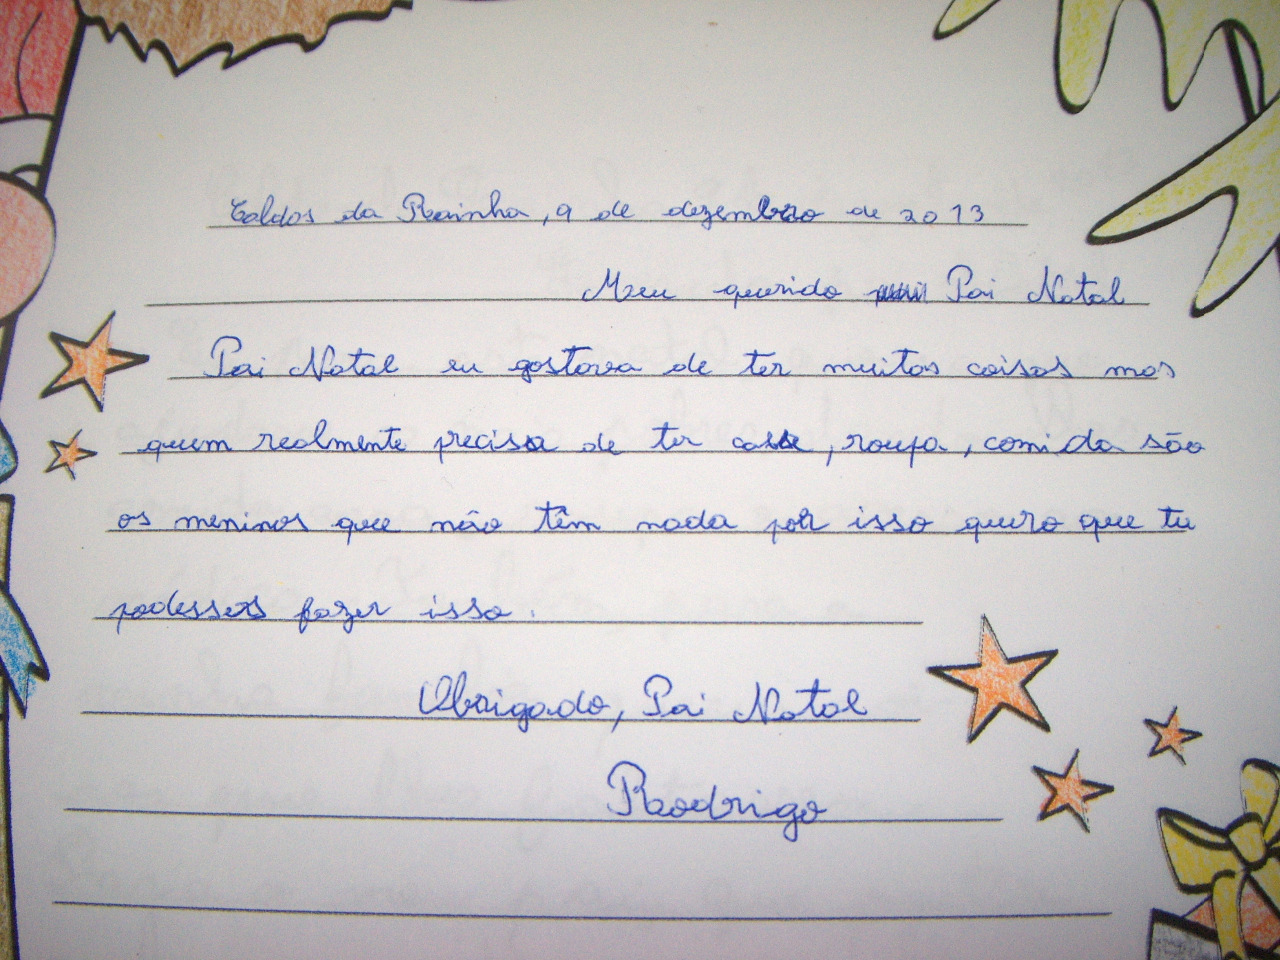 Caldas da Rainha, 9 de dezembro de 2013
Meu querido Pai Natal
Pai Natal eu gostava de ter muitas coisas mas
quem realmente precisa de ter casa, roupa, comida são
os meninos que não têm nada por isso quero que tu
podesses fazer isso.
Obrigado, Pai Natal
Rodrigo